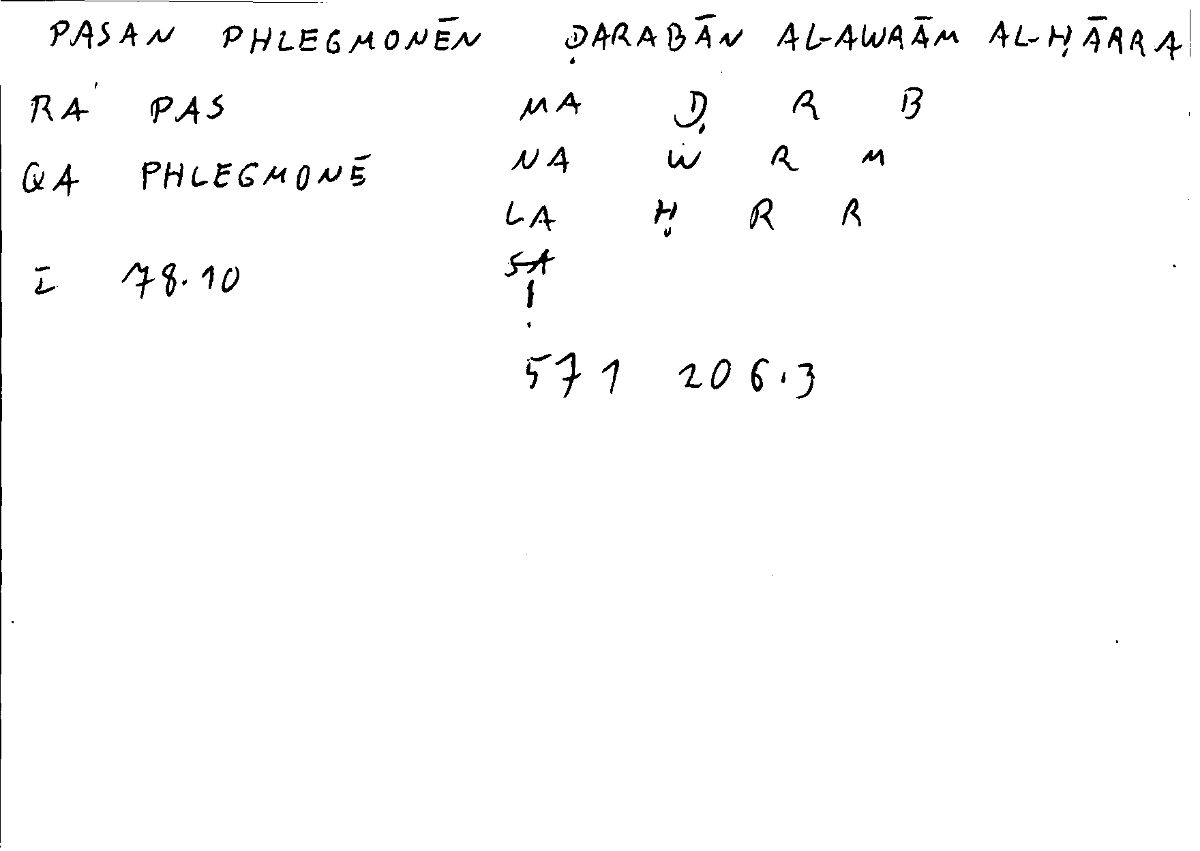 PASAN PHLEGMONĒN ḌARABĀN AL-AWRĀM AL-ḤĀRRA
RA PAS MA Ḍ R B
QA PHLEGMONĒ NA W R M
LA Ḥ R R
I 78.10
571 206.3